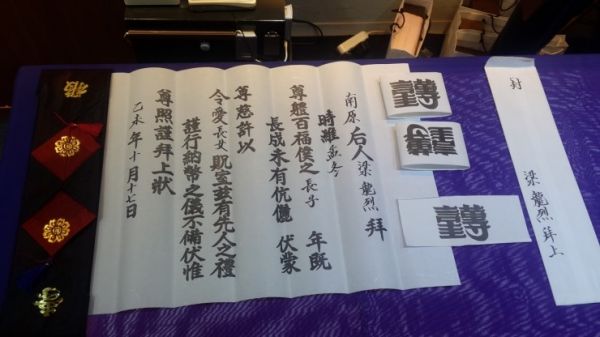 封
梁龍烈拜上
南原 后人 梁龍烈 拜
時維 孟冬
尊體百福僕之長子 年既
長成未有伉儷 伏蒙
尊慈許以
令愛長女貺室玆有先人之禮
謹行納幣之儀不備伏惟
尊照謹拜上狀
乙未年十月十七日